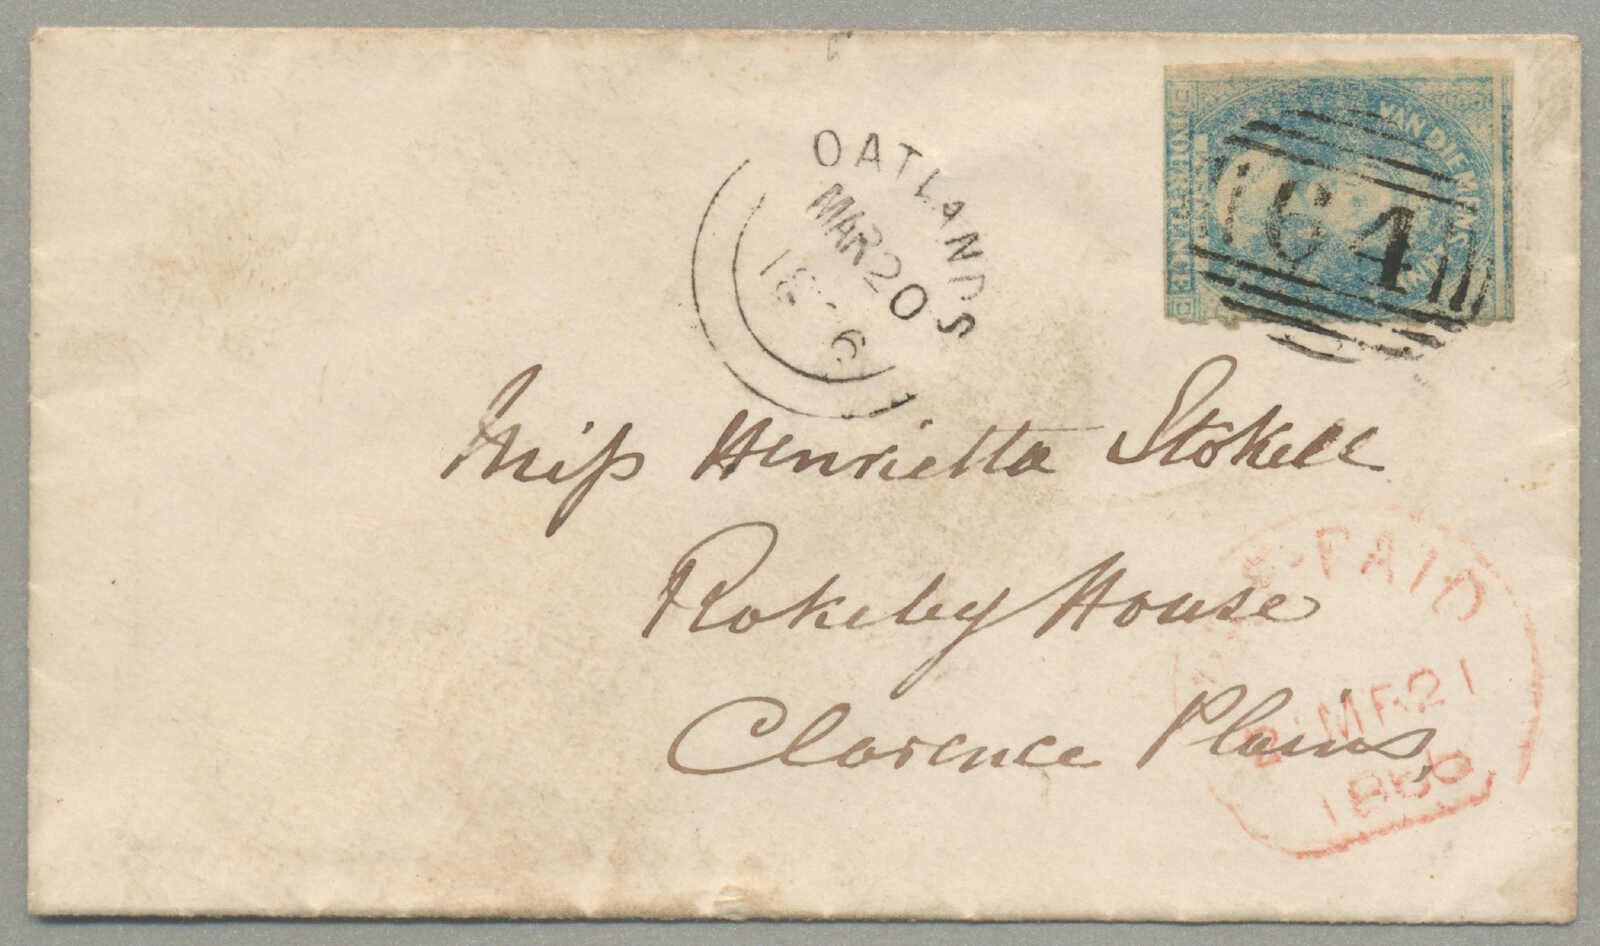 OATLANDS
MAR 20
186
VAN DIEMENS
FOURPENCE
64
Miss Henrietta Stokell
Rokeby House
Clarence Plains,
PAID
MR 21
1866